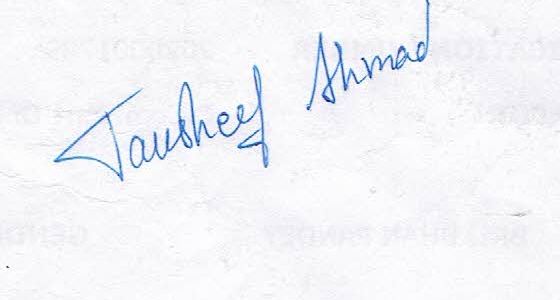 Tausheef Ahmad